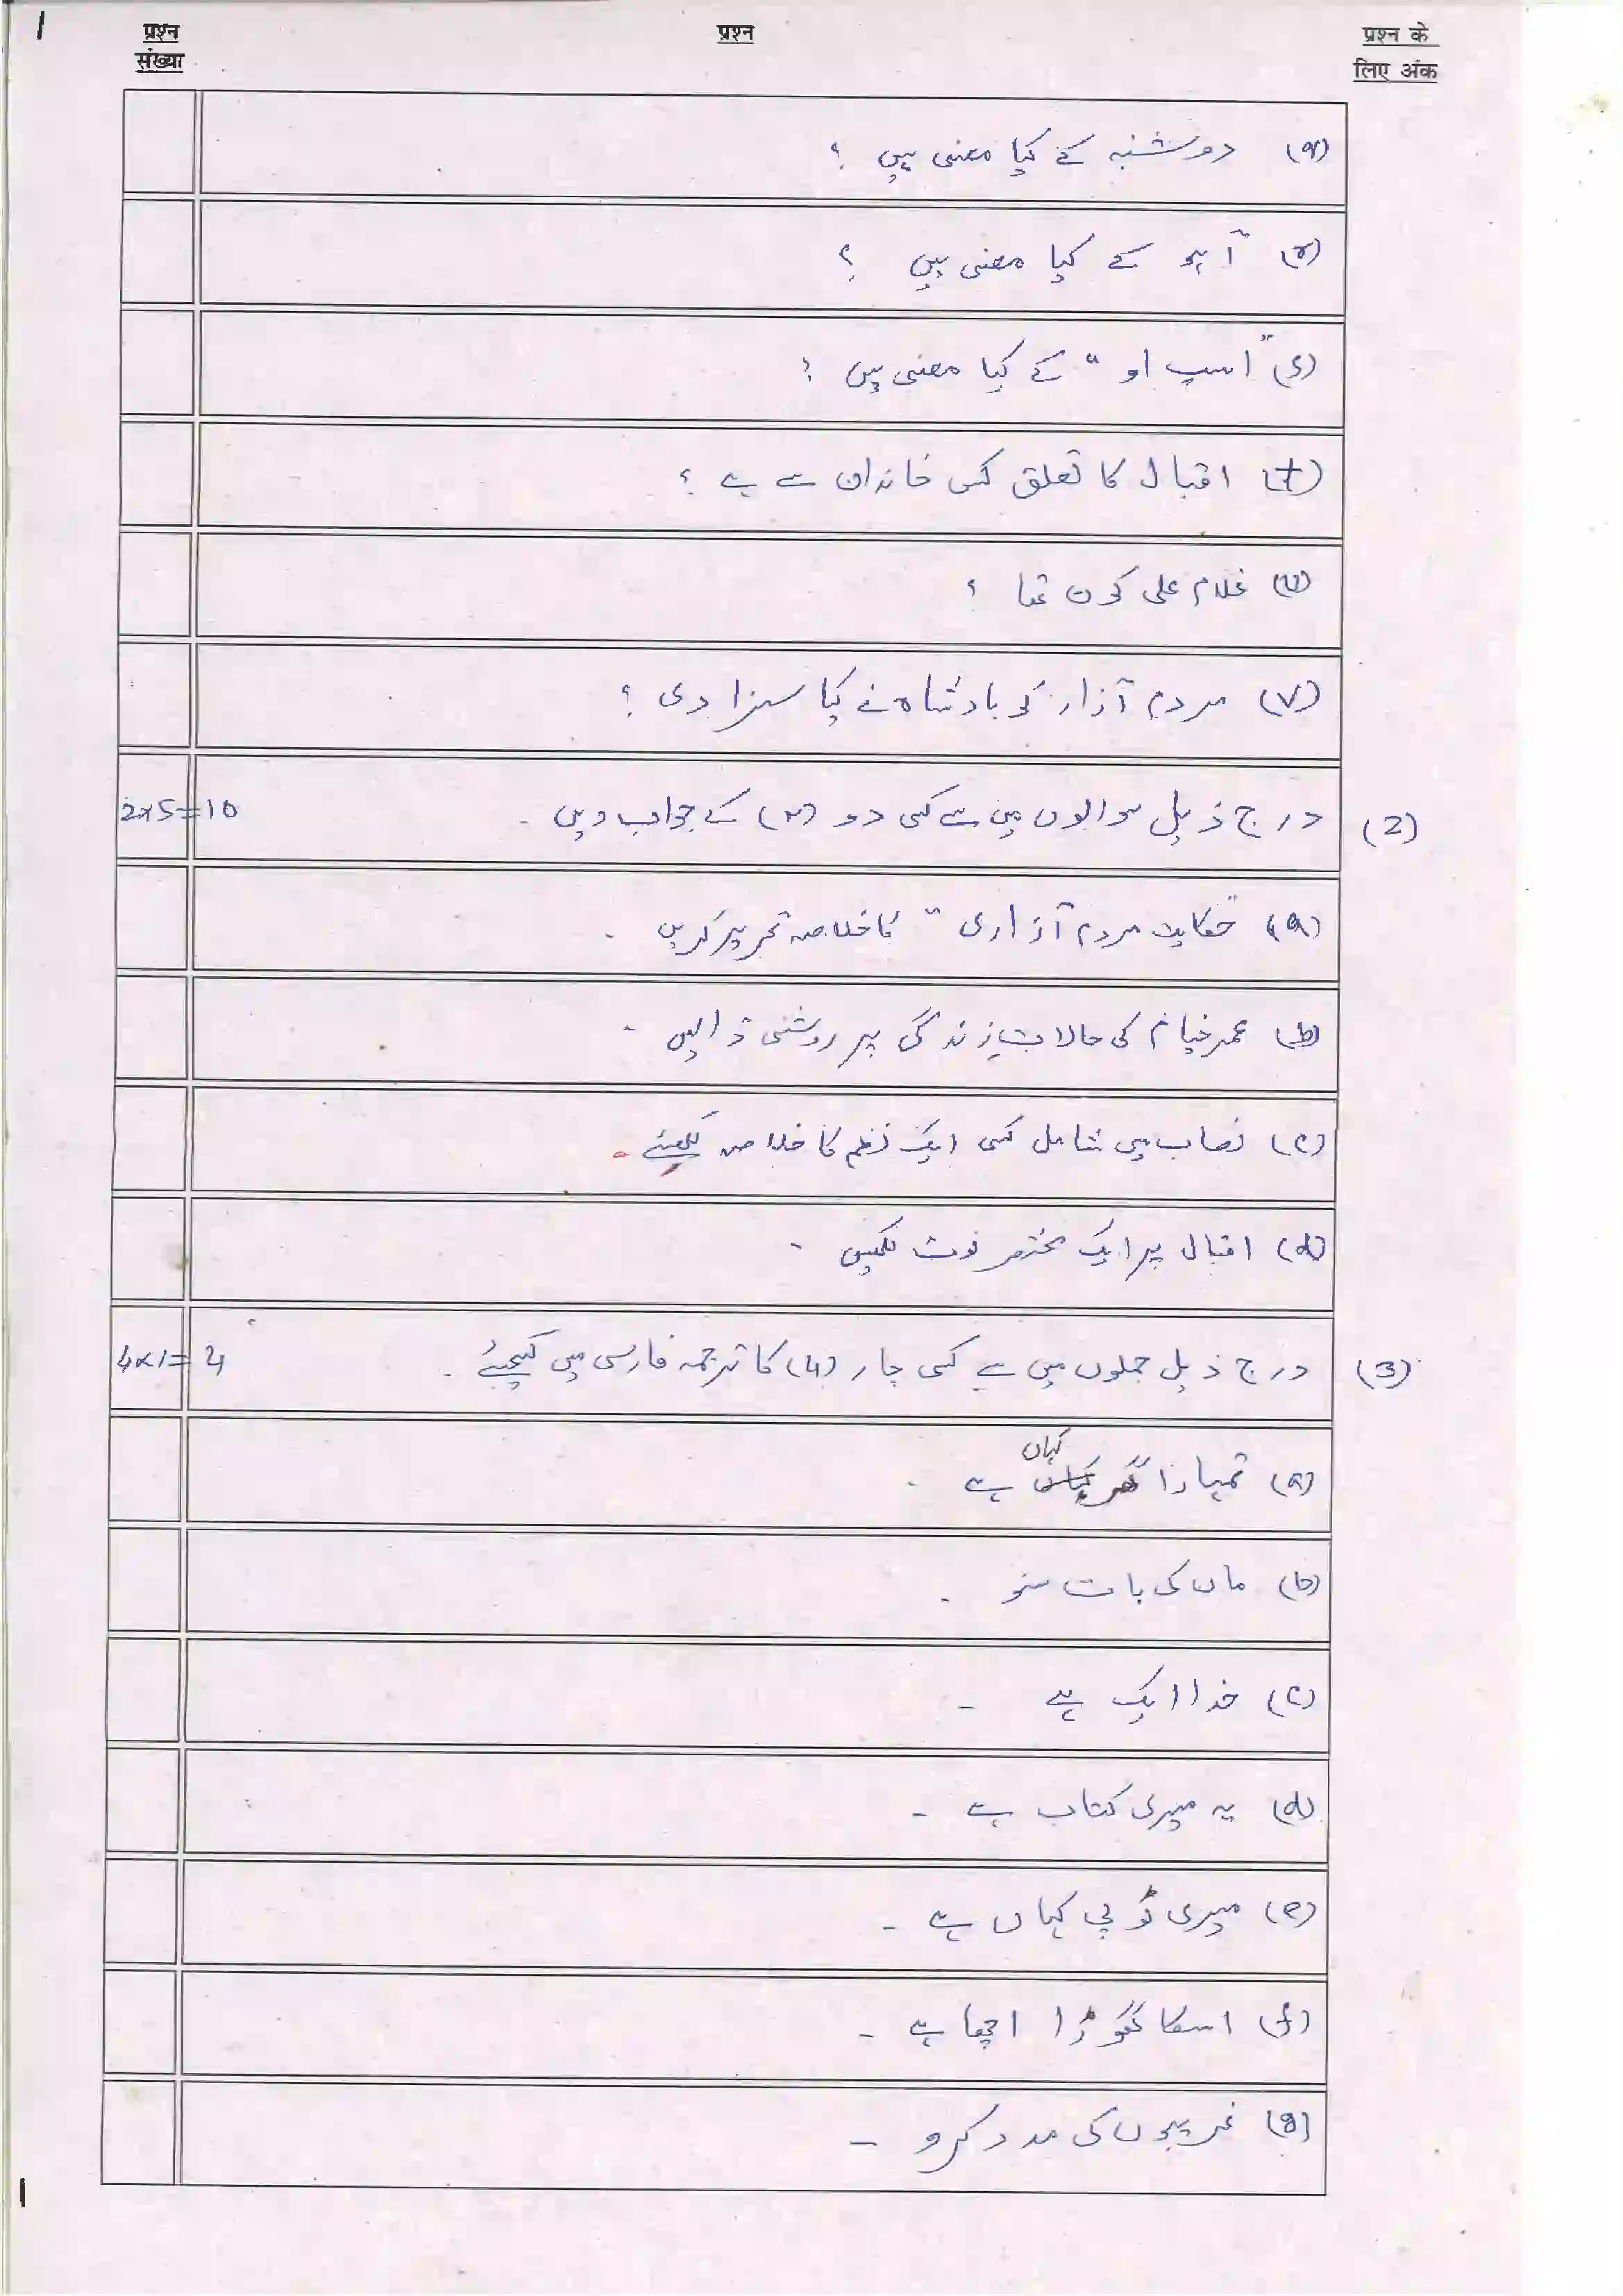 1
प्रश्न संख्या
प्रश्न
प्रश्न के लिए अंक
(q) دوشنبہ کے کیا معنی ہیں ؟
(r) آہو کے کیا معنی ہیں ؟
(s) "اسپ او" کے کیا معنی ہیں ؟
(t) اقبال کا تعلق کس خاندان سے ہے ؟
(u) غلام علی کون تھا ؟
(v) مردم آزار کو بادشاہ نے کیا سزا دی ؟
(2) درج ذیل سوالوں میں سے کسی دو (۲) کے جواب دیں ۔ 2x5=10
(a) "حکایت مردم آزاری" کا خلاصہ تحریر کریں ۔
(b) عمر خیام کی حالات زندگی پر روشنی ڈالیں ۔
(c) نصاب میں شامل کسی ایک نظم کا خلاصہ لکھئے ۔
(d) اقبال پر ایک مختصر نوٹ لکھیں ۔
(3) درج ذیل جملوں میں سے کسی چار (4) کا ترجمہ فارسی میں کیجئے ۔ 4x1=4
(a) تمہارا گھر کہاں ہے ۔
(b) ماں کی بات سنو ۔
(c) خدا ایک ہے ۔
(d) یہ میری کتاب ہے ۔
(e) میری ٹوپی کہاں ہے ۔
(f) اسکا گھوڑا اچھا ہے ۔
(g) غریبوں کی مدد کرو ۔
1